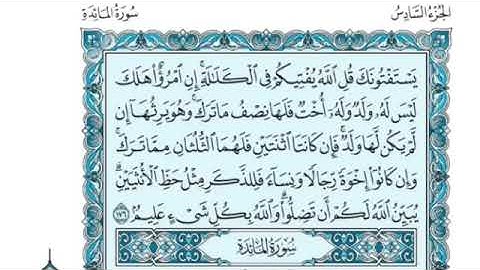 الجزء السادس سورة المائدة
يَسْتَفْتُونَكَ قُلِ ٱللَّهُ يُفْتِيكُمْ فِى ٱلْكَلَٰلَةِ ۚ إِنِ ٱمْرُؤٌا۟ هَلَكَ
لَيْسَ لَهُۥ وَلَدٌ وَلَهُۥٓ أُخْتٌ فَلَهَا نِصْفُ مَا تَرَكَ ۚ وَهُوَ يَرِثُهَآ إِن
لَّمْ يَكُن لَّهَا وَلَدٌ ۚ فَإِن كَانَتَا ٱثْنَتَيْنِ فَلَهُمَا ٱلثُّلُثَانِ مِمَّا تَرَكَ ۚ
وَإِن كَانُوٓا۟ إِخْوَةً رِّجَالًا وَنِسَآءً فَلِلذَّكَرِ مِثْلُ حَظِّ ٱلْأُنثَيَيْنِ ۗ
يُبَيِّنُ ٱللَّهُ لَكُمْ أَن تَضِلُّوا۟ ۗ وَٱللَّهُ بِكُلِّ شَىْءٍ عَلِيمٌۢ ١٧٦
سُورَةُ المَائِدَةِ